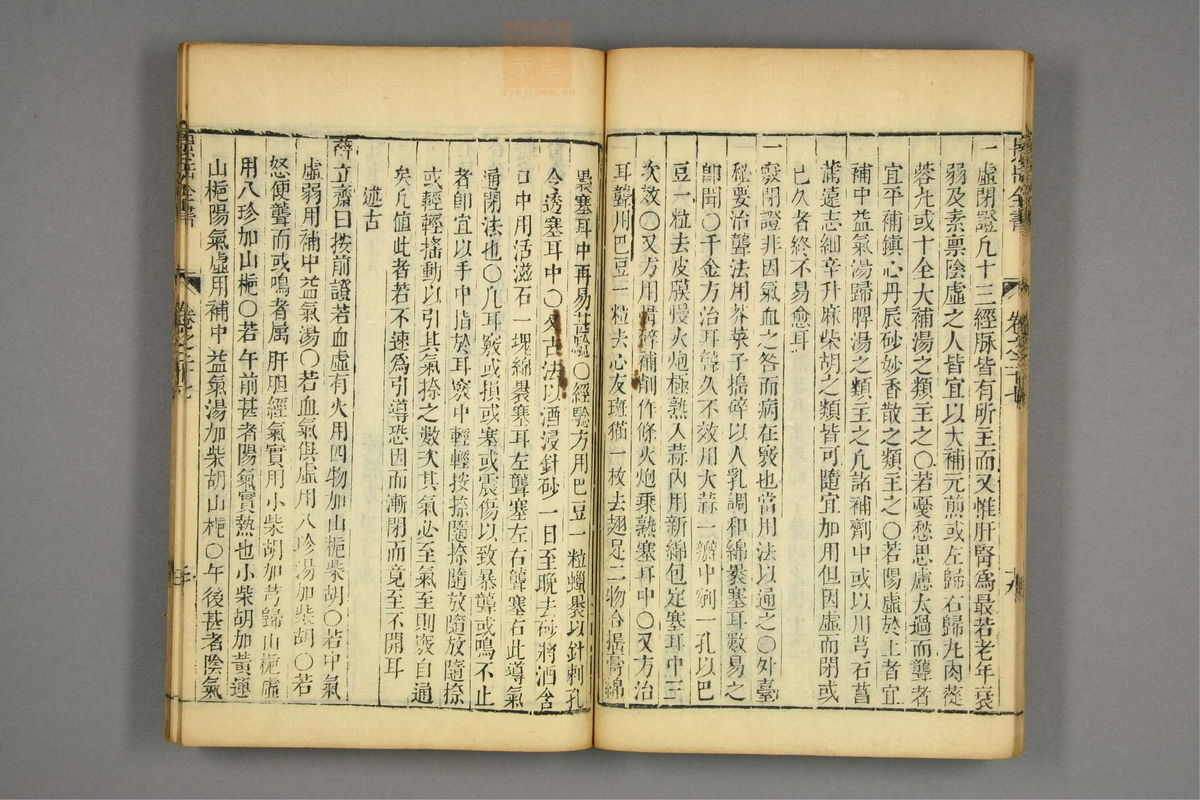 一虛閉證凡十三經脉皆有所主而又惟肝腎爲最若老年衰
弱及素禀陰虛之人皆宜以大補元煎或左歸右歸丸肉蓯
蓉丸或十全大補湯之類主之○若憂愁思慮太過而聾者
宜平補鎮心丹辰砂妙香散之類主之○若陽虛於上者宜
補中益氣湯歸脾湯之類主之凡諸補劑中或以川芎石菖
蒲遠志細辛升麻柴胡之類皆可隨宜加用但因虛而閉或
已久者終不易愈耳
一竅閉證非因氣血之咎而病在竅也當用法以通之○外臺
秘要治聾法用芥菜子搗碎以人乳調和綿褁塞耳數易之
卽聞○千金方治耳聾久不效用大蒜一瓣中剜一孔以巴
豆一粒去皮膜慢火炮極熟入蒜內用新綿包定塞耳中三
次效○又方用骨碎補削作條火炮乘熟塞耳中○又方治
耳聾用巴豆一粒去心皮斑猫一枚去翅足二物合搗膏綿
褁塞耳中再易甚驗○經驗方用巴豆一粒蠟褁以針刺孔
令透塞耳中○又古法以酒浸針砂一日至晚去砂將酒含
口中用活滋石一塊綿褁塞耳左聾塞左右聾塞右此導氣
通閉法也○凡耳竅或損或塞或震傷以致暴聾或鳴不止
者卽宜以手中指於耳竅中輕輕按捺隨捺隨放隨放隨捺
或輕輕搖動以引其氣捺之數次其氣必至氣至則竅自通
矣凡值此者若不速爲引導恐因而漸閉而竟至不開耳
述古
薛立齋曰按前證若血虛有火用四物加山梔柴胡○若中氣
虛弱用補中益氣湯○若血氣俱虛用八珍湯加柴胡○若
怒便聾而或鳴者属肝胆經氣實用小柴胡加芎歸山梔虛
用八珍加山梔○若午前甚者陽氣實熱也小柴胡加黃連
山梔陽氣虛用補中益氣湯加柴胡山梔○午後甚者陰氣
景岳全書
卷之二十七